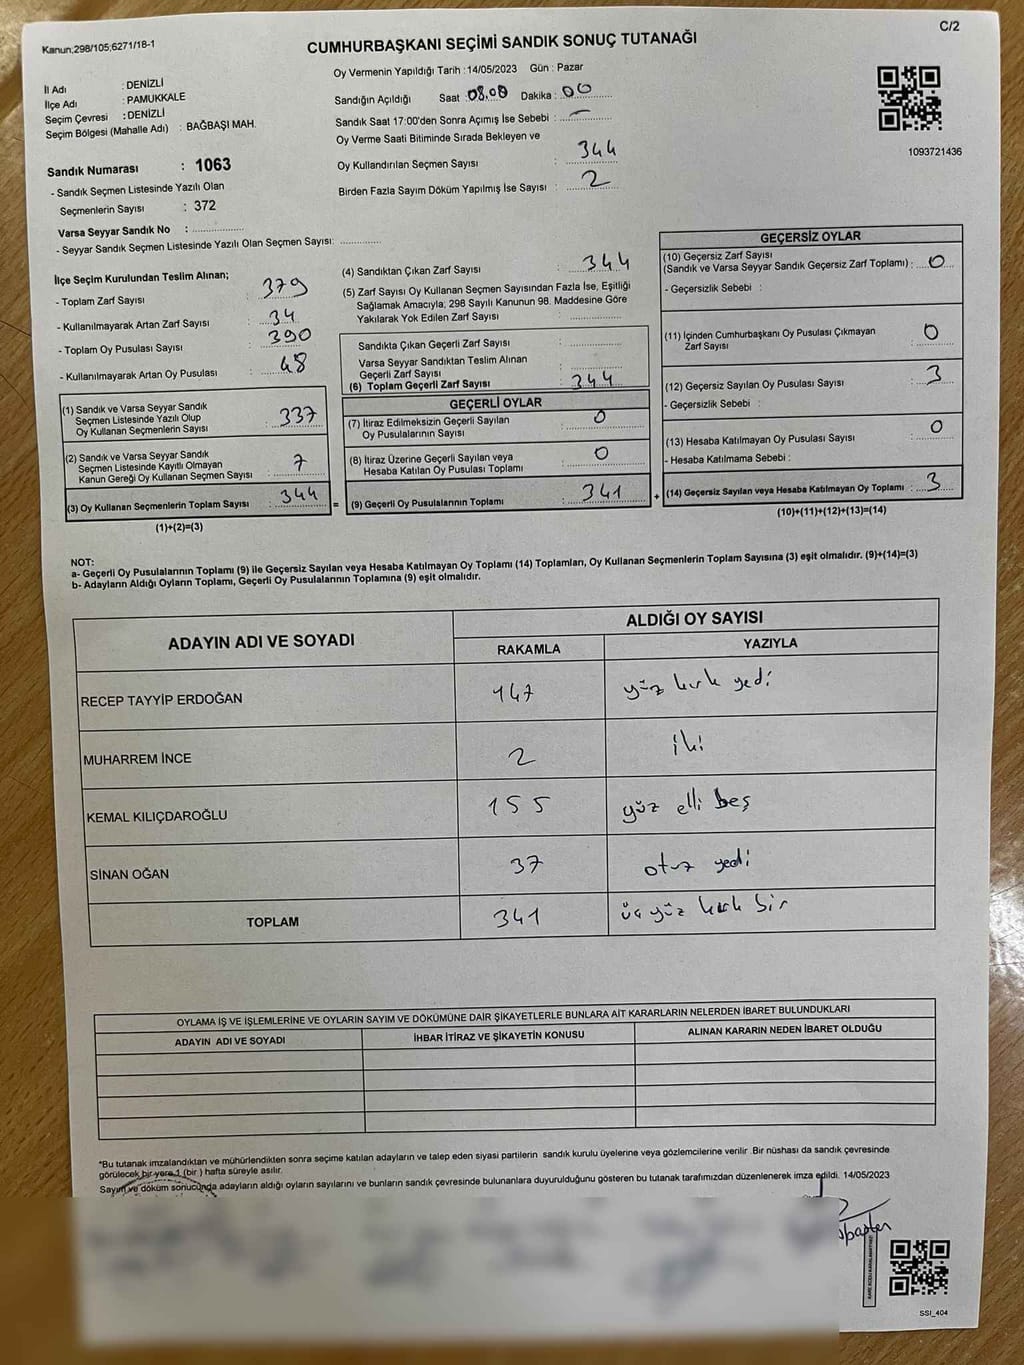 Kanun;298/105;6271/18-1
C/2
CUMHURBAŞKANI SEÇİMİ SANDIK SONUÇ TUTANAĞI
İl Adı : DENİZLİ
İlçe Adı : PAMUKKALE
Seçim Çevresi : DENİZLİ
Seçim Bölgesi (Mahalle Adı) : BAĞBAŞI MAH.
Oy Vermenin Yapıldığı Tarih : 14/05/2023 Gün : Pazar
Sandığın Açıldığı Saat : 08.00 Dakika : 00
Sandık Saat 17:00'den Sonra Açılmış İse Sebebi : —
Oy Verme Saati Bitiminde Sırada Bekleyen ve
Oy Kullandırılan Seçmen Sayısı : 344
Birden Fazla Sayım Döküm Yapılmış İse Sayısı : 2
1093721436
Sandık Numarası : 1063
- Sandık Seçmen Listesinde Yazılı Olan
Seçmenlerin Sayısı : 372
Varsa Seyyar Sandık No :
- Seyyar Sandık Seçmen Listesinde Yazılı Olan Seçmen Sayısı:
İlçe Seçim Kurulundan Teslim Alınan;
- Toplam Zarf Sayısı : 379
- Kullanılmayarak Artan Zarf Sayısı : 34
- Toplam Oy Pusulası Sayısı : 390
- Kullanılmayarak Artan Oy Pusulası : 48
(1) Sandık ve Varsa Seyyar Sandık
Seçmen Listesinde Yazılı Olup
Oy Kullanan Seçmenlerin Sayısı : 337
(2) Sandık ve Varsa Seyyar Sandık
Seçmen Listesinde Kayıtlı Olmayan
Kanun Gereği Oy Kullanan Seçmen Sayısı : 7
(3) Oy Kullanan Seçmenlerin Toplam Sayısı : 344
(1)+(2)=(3)
(4) Sandıktan Çıkan Zarf Sayısı : 344
(5) Zarf Sayısı Oy Kullanan Seçmen Sayısından Fazla İse, Eşitliği
Sağlamak Amacıyla; 298 Sayılı Kanunun 98. Maddesine Göre
Yakılarak Yok Edilen Zarf Sayısı :
Sandıkta Çıkan Geçerli Zarf Sayısı :
Varsa Seyyar Sandıktan Teslim Alınan
Geçerli Zarf Sayısı :
(6) Toplam Geçerli Zarf Sayısı : 344
GEÇERLİ OYLAR
(7) İtiraz Edilmeksizin Geçerli Sayılan
Oy Pusulalarının Sayısı : 0
(8) İtiraz Üzerine Geçerli Sayılan veya
Hesaba Katılan Oy Pusulası Toplamı : 0
= (9) Geçerli Oy Pusulalarının Toplamı : 341
GEÇERSİZ OYLAR
(10) Geçersiz Zarf Sayısı
(Sandık ve Varsa Seyyar Sandık Geçersiz Zarf Toplamı) : 0
- Geçersizlik Sebebi :
(11) İçinden Cumhurbaşkanı Oy Pusulası Çıkmayan
Zarf Sayısı : 0
(12) Geçersiz Sayılan Oy Pusulası Sayısı : 3
- Geçersizlik Sebebi :
(13) Hesaba Katılmayan Oy Pusulası Sayısı : 0
- Hesaba Katılmama Sebebi :
+ (14) Geçersiz Sayılan veya Hesaba Katılmayan Oy Toplamı : 3
(10)+(11)+(12)+(13)=(14)
NOT:
a- Geçerli Oy Pusulalarının Toplamı (9) ile Geçersiz Sayılan veya Hesaba Katılmayan Oy Toplamı (14) Toplamları, Oy Kullanan Seçmenlerin Toplam Sayısına (3) eşit olmalıdır. (9)+(14)=(3)
b- Adayların Aldığı Oyların Toplamı, Geçerli Oy Pusulalarının Toplamına (9) eşit olmalıdır.
ADAYIN ADI VE SOYADI ALDIĞI OY SAYISI
RAKAMLA YAZIYLA
RECEP TAYYİP ERDOĞAN 147 yüz kırk yedi
MUHARREM İNCE 2 iki
KEMAL KILIÇDAROĞLU 155 yüz elli beş
SİNAN OĞAN 37 otuz yedi
TOPLAM 341 üç yüz kırk bir
OYLAMA İŞ VE İŞLEMLERİNE VE OYLARIN SAYIM VE DÖKÜMÜNE DAİR ŞİKAYETLERLE BUNLARA AİT KARARLARIN NELERDEN İBARET BULUNDUKLARI
ADAYIN ADI VE SOYADI İHBAR İTİRAZ VE ŞİKAYETİN KONUSU ALINAN KARARIN NEDEN İBARET OLDUĞU
*Bu tutanak imzalandıktan ve mühürlendikten sonra seçime katılan adayların ve talep eden siyasi partilerin sandık kurulu üyelerine veya gözlemcilerine verilir. Bir nüshası da sandık çevresinde
görülecek bir yere 1 (bir ) hafta süreyle asılır.
Sayım ve döküm sonucunda adayların aldığı oyların sayılarını ve bunların sandık çevresinde bulunanlara duyurulduğunu gösteren bu tutanak tarafımızdan düzenlenerek imza edildi. 14/05/2023
SSI_404